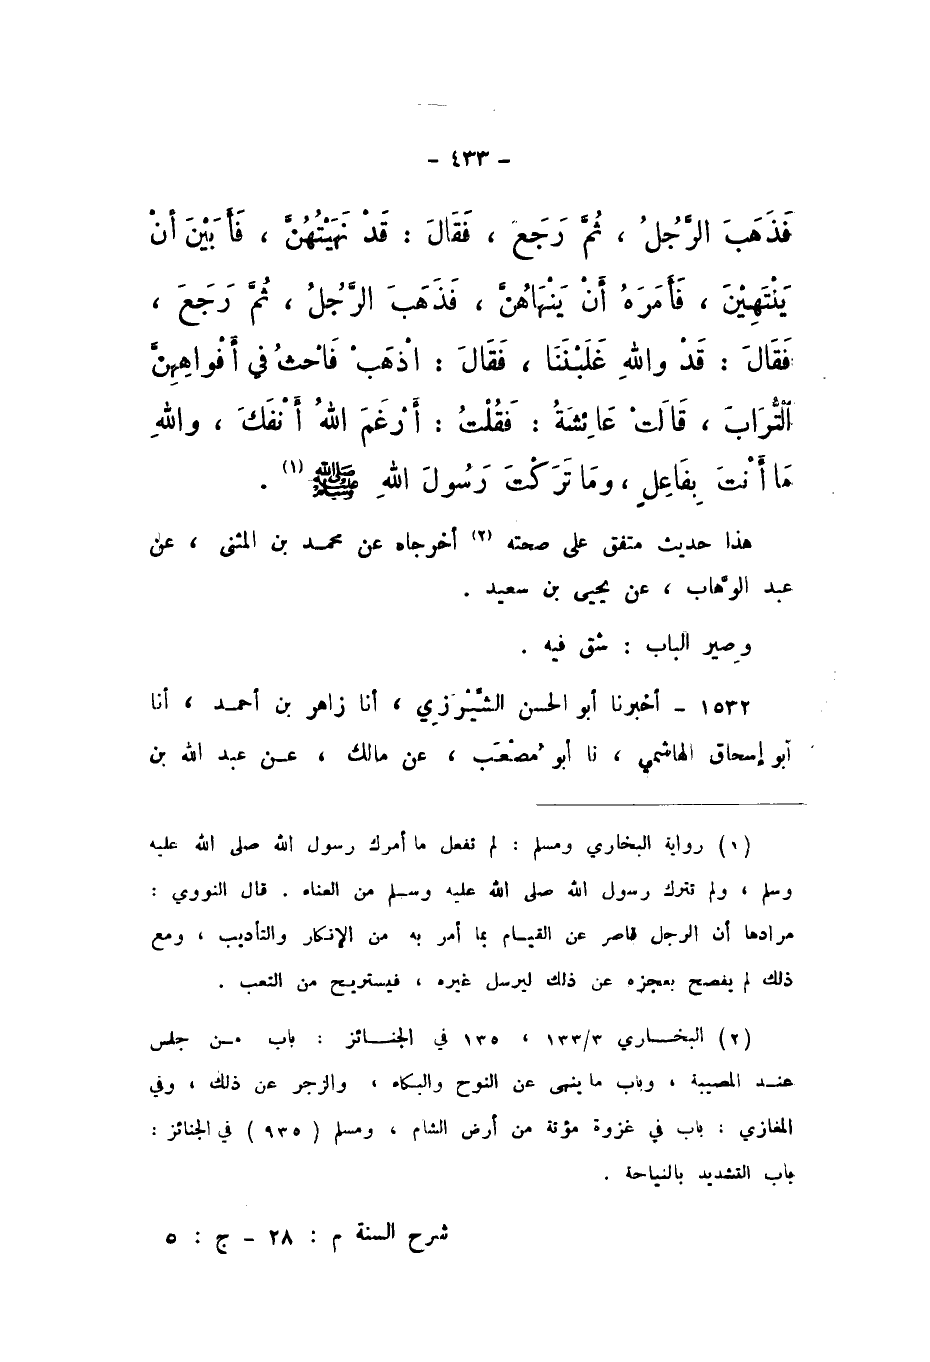 - ٤٣٣ -
فَذَهَبَ الرَّجُلُ ، ثُمَّ رَجَعَ ، فَقَالَ : قَدْ نَهَيْتُهُنَّ ، فَأَبَيْنَ أنْ
يَنْتَهِيْنَ ، فَأَمَرَهُ أَنْ يَنْهَاهُنَّ ، فَذَهَبَ الرَّجُلُ ، ثُمَّ رَجَعَ ،
فَقَالَ : قَدْ واللهِ غَلَبْنَنَا ، فَقَالَ : اذْهَبْ فَاحْثُ في أَفْواهِهِنَّ
التُّرَابَ ، قَالَتْ عَائِشَةُ : فَقُلْتُ : أَرْغَمَ اللهُ أَنْفَكَ ، واللهِ
مَا أَنْتَ بِفَاعِلٍ ، ومَا تَرَكْتَ رَسُولَ اللهِ ﷺ (١) .
هذا حديث متفق على صحته (٢) أخرجاه عن محمد بن المثنى ، عن
عبد الوهاب ، عن يحيى بن سعيد .
وصِير الباب : شق فيه .
١٥٣٢ - أخبرنا أبو الحسن الشَّيْرَزِي ، أنا زاهر بن أحمد ، أنا
أبو إسحاق الهاشمي ، نا أبو مُصْعَب ، عن مالك ، عن عبد الله بن
(١) رواية البخاري ومسلم : لم تفعل ما أمرك رسول الله صلى الله عليه
وسلم ، ولم تترك رسول الله صلى الله عليه وسلم من العناء . قال النووي :
مرادها أن الرجل قاصر عن القيام بما أمر به من الإنكار والتأديب ، ومع
ذلك لم يفصح بعجزه عن ذلك ليرسل غيره ، فيستريح من التعب .
(٢) البخاري ١٣٣/٣ ، ١٣٥ في الجنائز : باب من جلس
عند المصيبة ، وباب ما ينهى عن النوح والبكاء ، والزجر عن ذلك ، وفي
المغازي : باب في غزوة مؤتة من أرض الشام ، ومسلم ( ٩٣٥ ) في الجنائز :
باب التشديد بالنياحة .
شرح السنة م : ٢٨ - ج : ٥